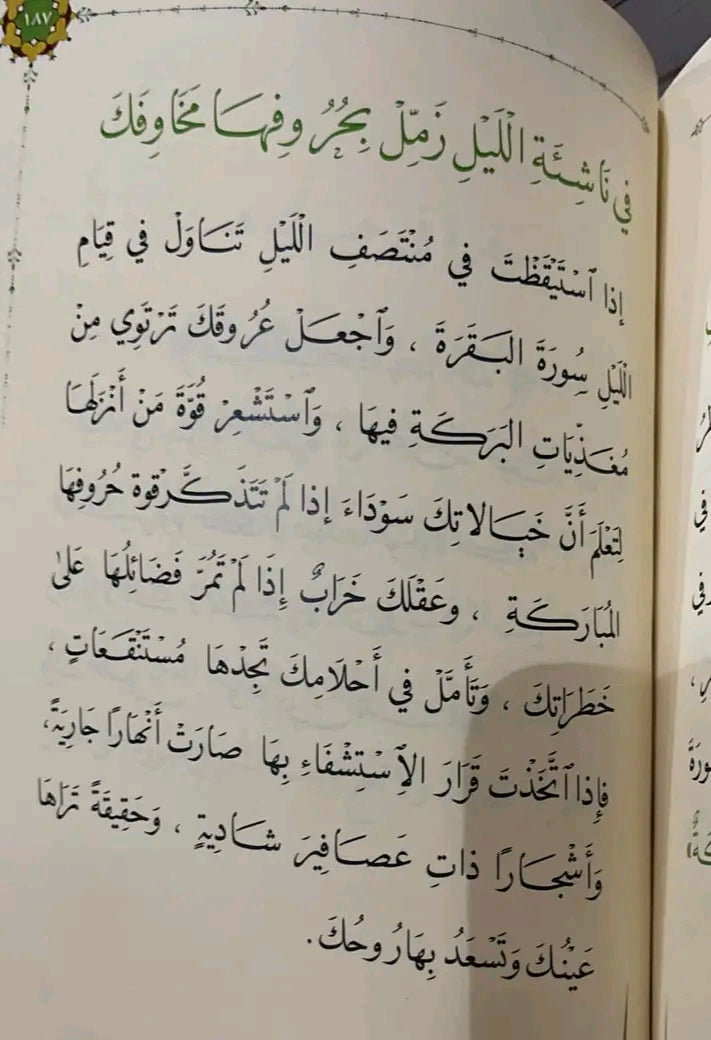 ١٨٧
فِي نَاشِئَةِ الْلَيْلِ زَمِّلْ بِحُرُوفِهَا مَخَاوِفَكَ
إِذا ٱسْتَيْقَظْتَ فِي مُنْتَصَفِ الْلَيْلِ تَنَاوَلْ فِي قِيَامِ
الْلَيْلِ سُورَةَ البَقَرَةَ ، وَٱجْعَلْ عُرُوقَكَ تَرْتَوِي مِنْ
مُغَذِّيَاتِ البَرَكَةِ فِيهَا ، وَٱسْتَشْعِرْ قُوَّةَ مَنْ أَنْزَلَهَا
لِتَعْلَمَ أَنَّ خَيَالاتِكَ سَوْدَاءَ إِذا لَمْ تَتَذَكَّرْ قوة حُرُوفِهَا
المُبَارَكَةِ ، وعَقْلَكَ خَرَابٌ إِذَا لَمْ تَمُرَّ فَضَائِلُهَا عَلىٰ
خَطَرَاتِكَ ، وَتَأَمَّلْ فِي أَحْلَامِكَ تَجِدْهَا مُسْتَنْقَعَاتٍ ،
فإِذا ٱتَّخَذْتَ قَرَارَ الاِسْتِشْفَاءِ بِهَا صَارَتْ أَنْهَارًا جَارِيَةً،
وَأَشْجَارًا ذاتِ عَصَافِيرَ شادِيةٍ ، وَحَقِيقَةً تَرَاهَا
عَيْنُكَ وَتَسْعَدُ بِهَا رُوحُكَ.